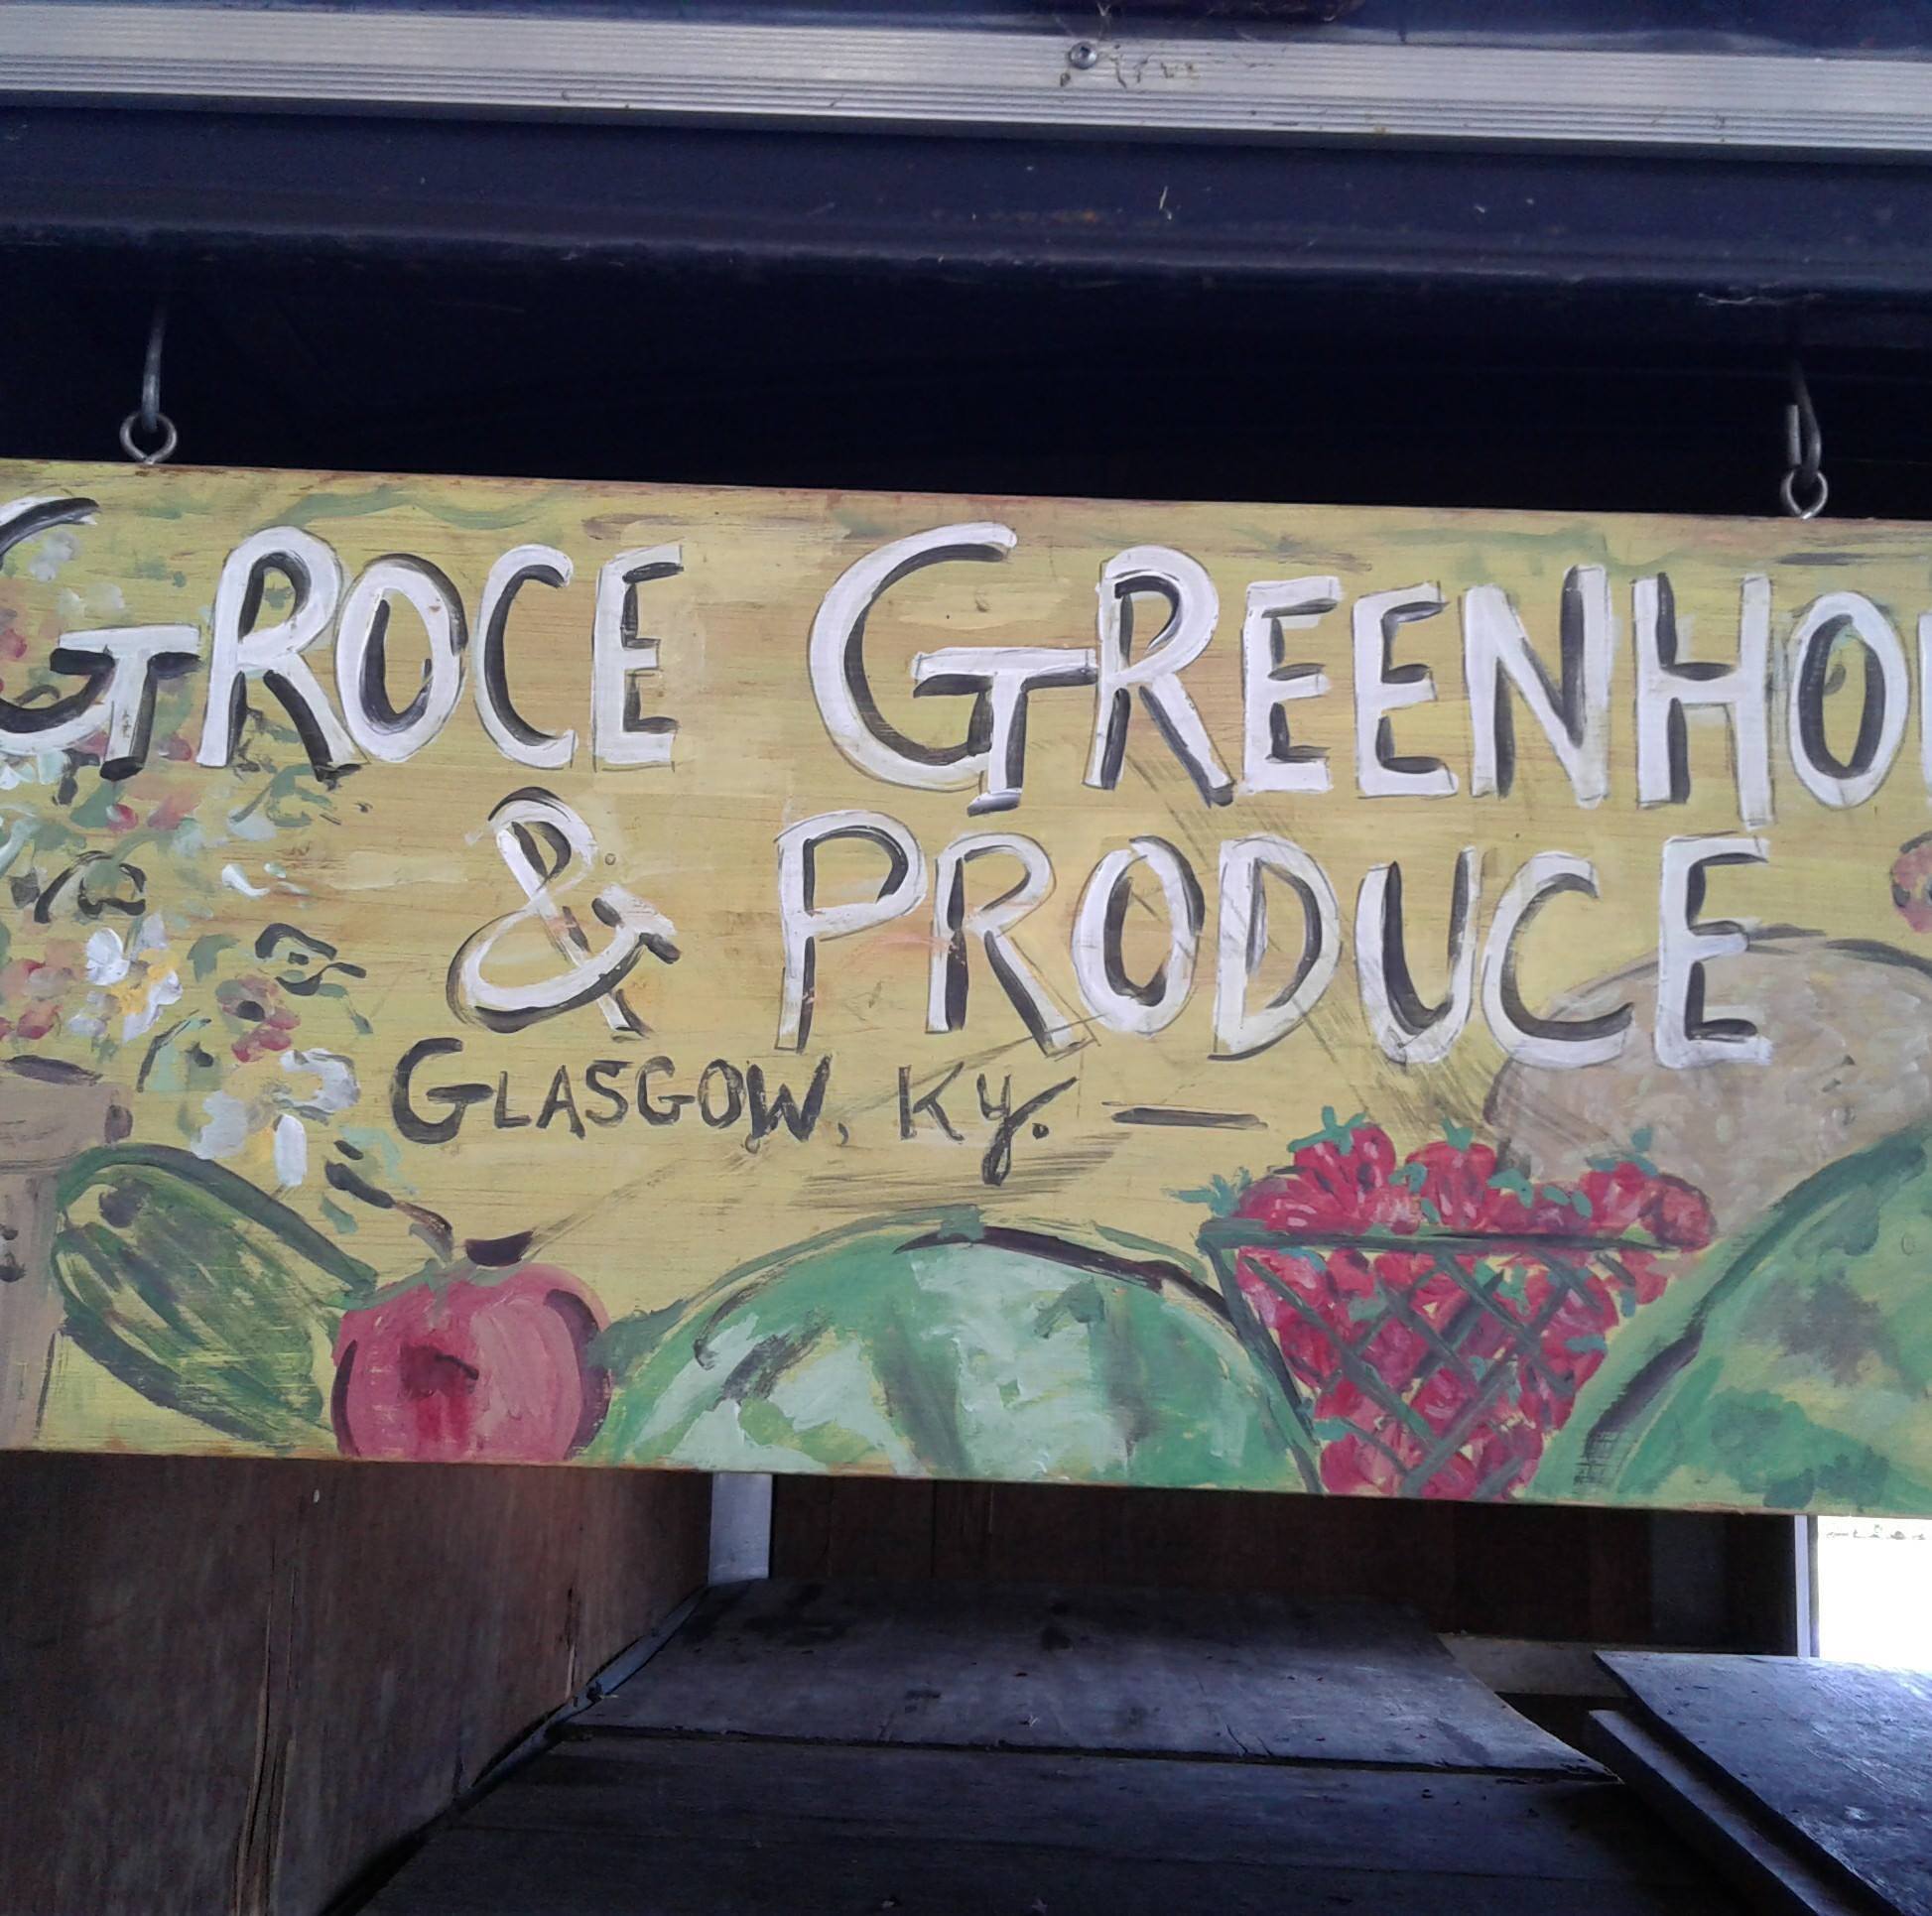 GROCE GREENHOU
& PRODUCE
GLASGOW, KY. —